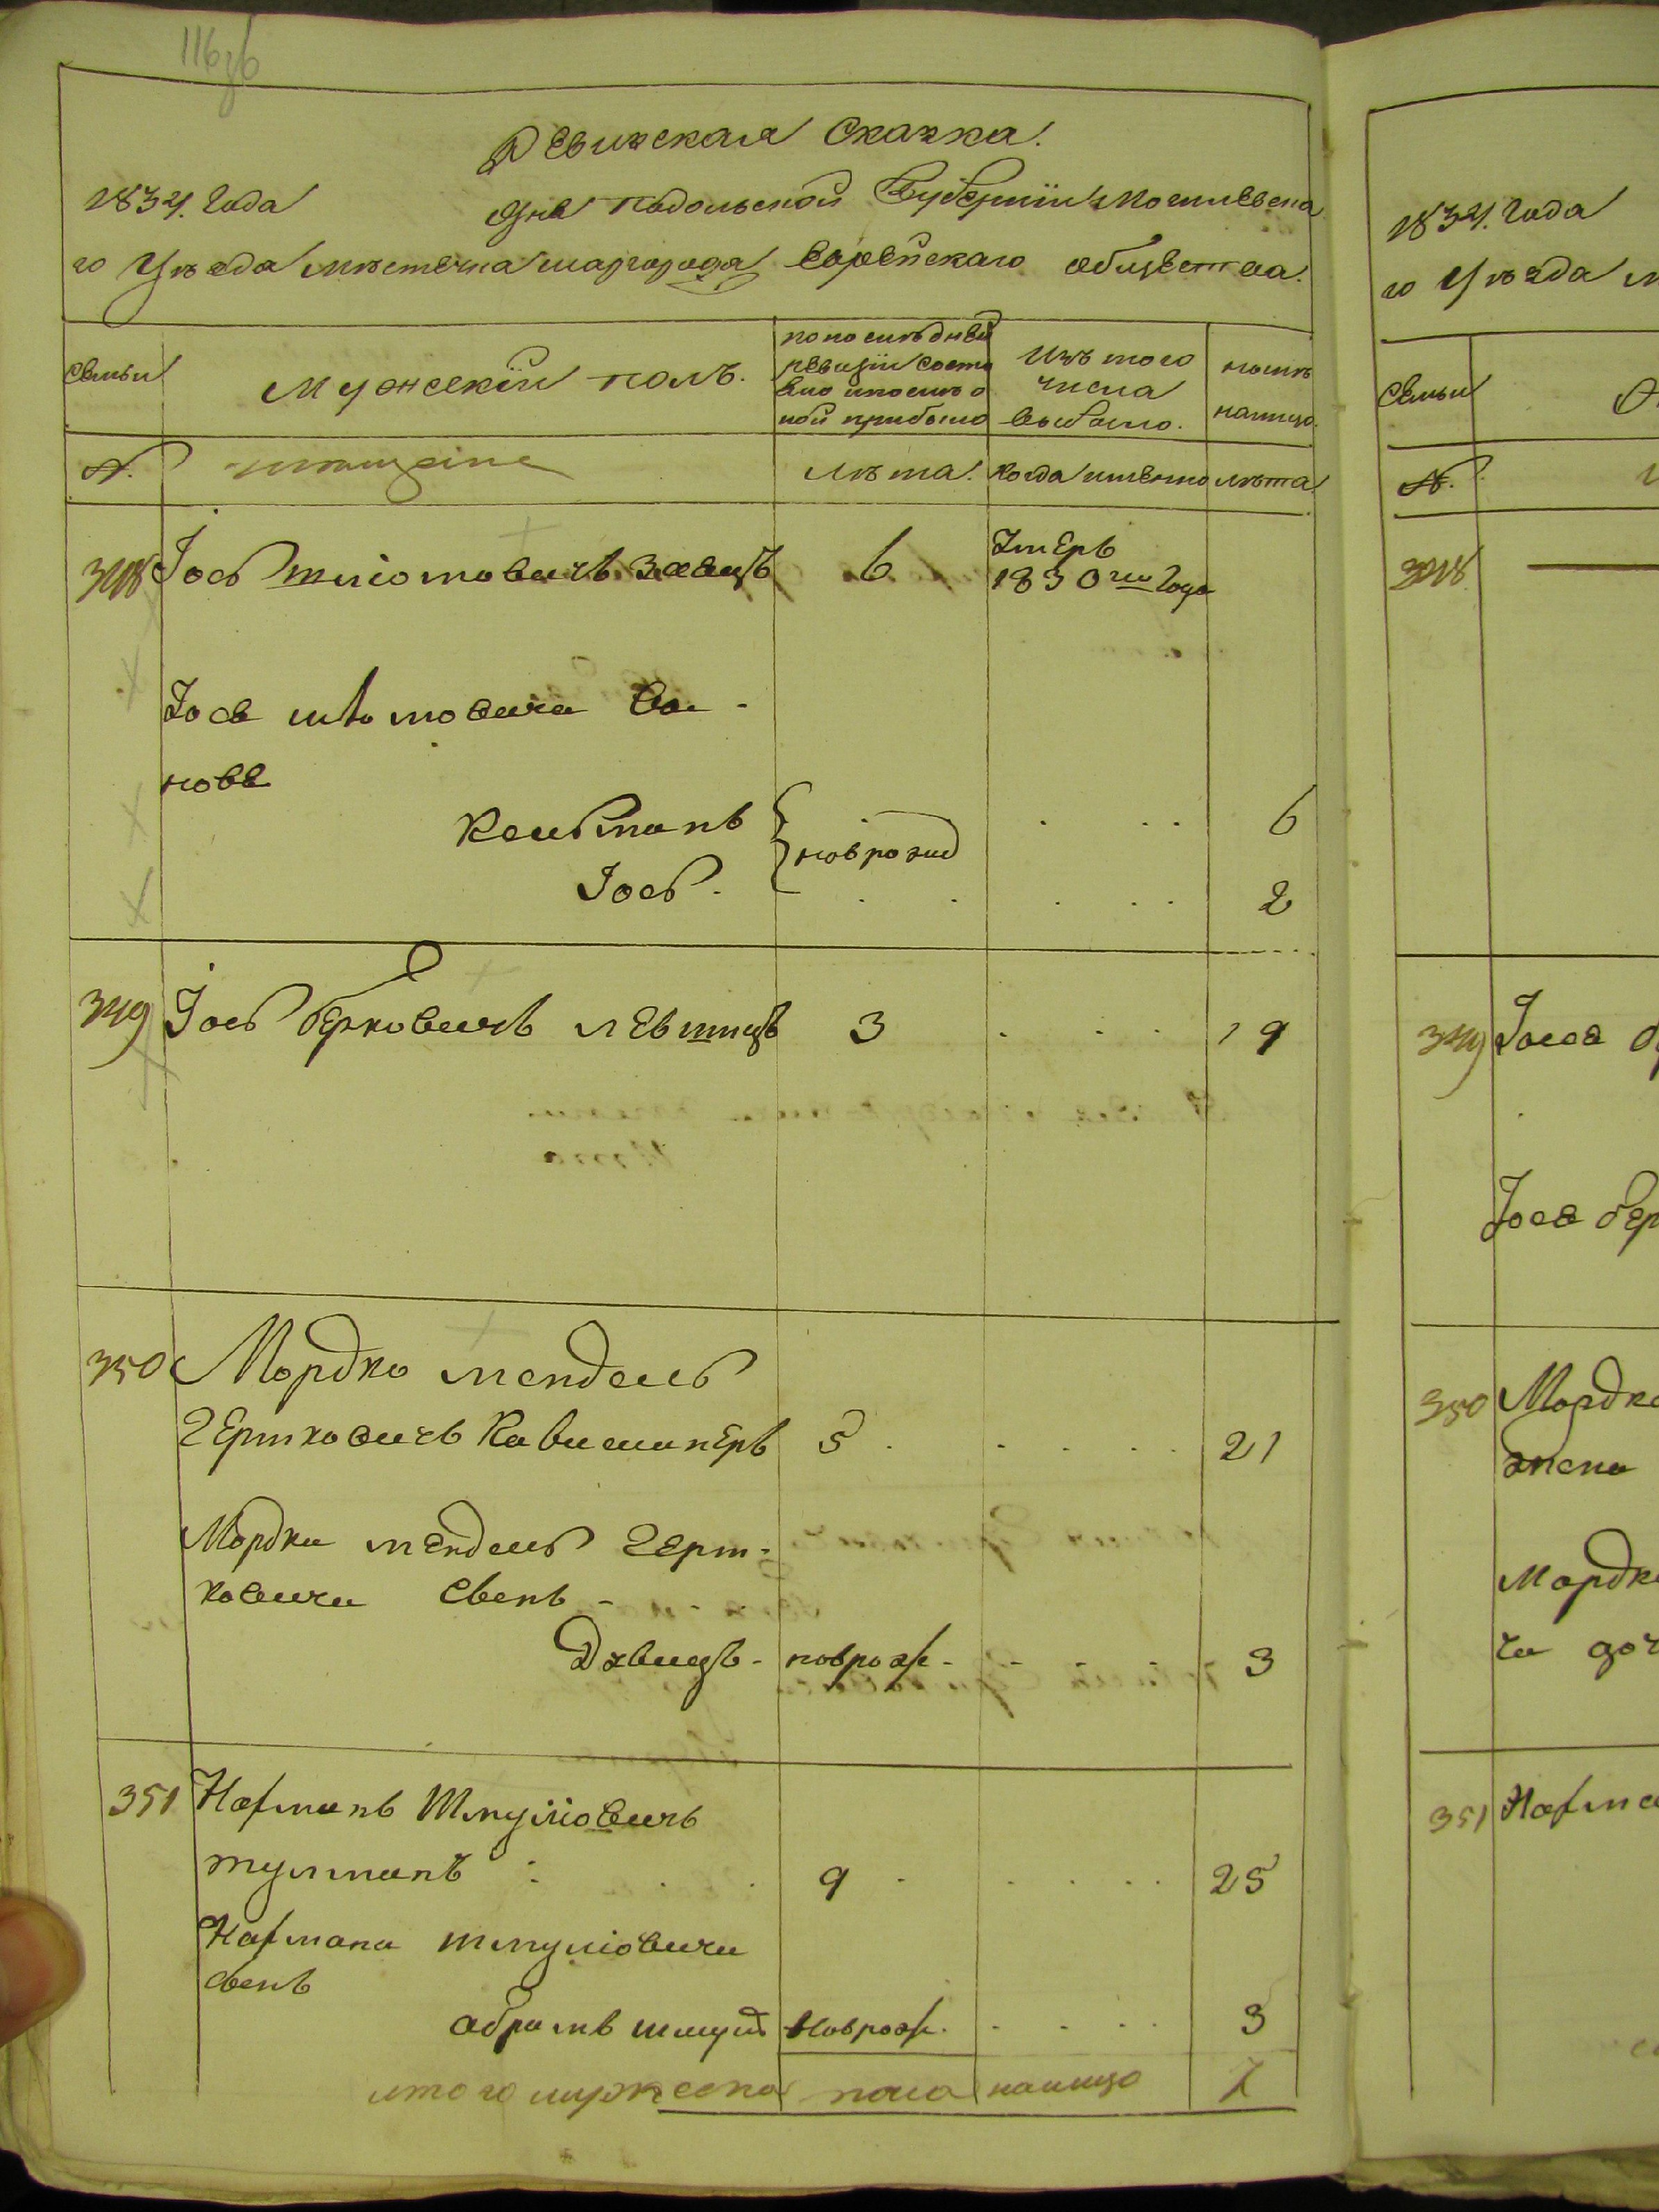 116об
Ревизская Сказка.
1834. Года
дня подольской Губернии Могилевска
го Уезда местечка шаргорода Еврейскаго общества.
Семьи
Мужескій полъ.
по последней
ревизіи состо
яло и после о
ной прибыло
Изъ того
числа
выбыло.
ныне
налицо.
№.
мещане
лета.
Когда именно
лета
348
Іось
6
Умеръ
1830го года
Іося
сы-
новя
Кельманъ
новрожд
6
Іось.
2
349
Іось берковичъ
3
19
350
Мордко мендель
Гершковичъ
5
21
Мордки мендель Герш-
ковича сынъ -
Давидъ -
новрож.
3
351
Нафманъ Шмуліовичъ
шулманъ
9
25
Нафмана шмуліовича
сынъ
абрамъ шмуль
новрож.
3
итого мужеска пола налицо
7
1834. Года
го Уезда м
Семьи
№.
348
349
Іося
Іося бер
350
Мордк
жена
Мордк
ча доч
351
Нафма